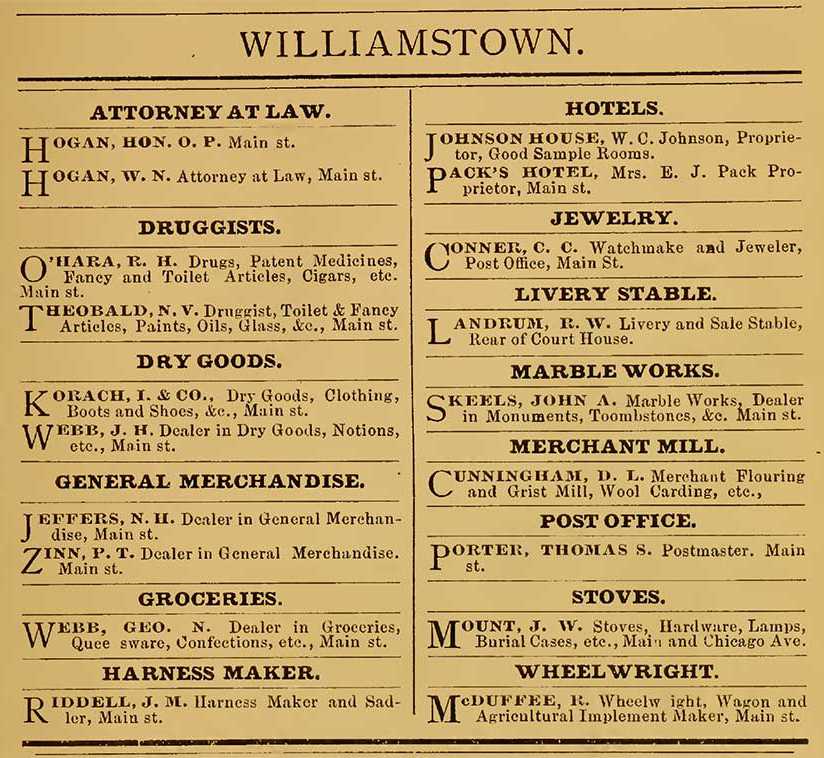 WILLIAMSTOWN.
ATTORNEY AT LAW.
HOGAN, HON. O. P. Main st.
HOGAN, W. N. Attorney at Law, Main st.
DRUGGISTS.
O'HARA, R. H. Drugs, Patent Medicines,
Fancy and Toilet Articles, Cigars, etc.
Main st.
THEOBALD, N. V. Druggist, Toilet & Fancy
Articles, Paints, Oils, Glass, &c., Main st.
DRY GOODS.
KORACH, I. & CO., Dry Goods, Clothing,
Boots and Shoes, &c., Main st.
WEBB, J. H. Dealer in Dry Goods, Notions,
etc., Main st.
GENERAL MERCHANDISE.
JEFFERS, N. H. Dealer in General Merchan-
dise, Main st.
ZINN, P. T. Dealer in General Merchandise.
Main st.
GROCERIES.
WEBB, GEO. N. Dealer in Groceries,
Quee sware, Confections, etc., Main st.
HARNESS MAKER.
RIDDELL, J. M. Harness Maker and Sad-
ler, Main st.
HOTELS.
JOHNSON HOUSE, W. C. Johnson, Proprie-
tor, Good Sample Rooms.
PACK'S HOTEL, Mrs. E. J. Pack Pro-
prietor, Main st.
JEWELRY.
CONNER, C. C. Watchmake and Jeweler,
Post Office, Main St.
LIVERY STABLE.
LANDRUM, R. W. Livery and Sale Stable,
Rear of Court House.
MARBLE WORKS.
SKEELS, JOHN A. Marble Works, Dealer
in Monuments, Toombstones, &c. Main st.
MERCHANT MILL.
CUNNINGHAM, D. L. Merchant Flouring
and Grist Mill, Wool Carding, etc.,
POST OFFICE.
PORTER, THOMAS S. Postmaster. Main
st.
STOVES.
MOUNT, J. W. Stoves, Hardware, Lamps,
Burial Cases, etc., Main and Chicago Ave.
WHEELWRIGHT.
McDUFFEE, R. Wheelw ight, Wagon and
Agricultural Implement Maker, Main st.